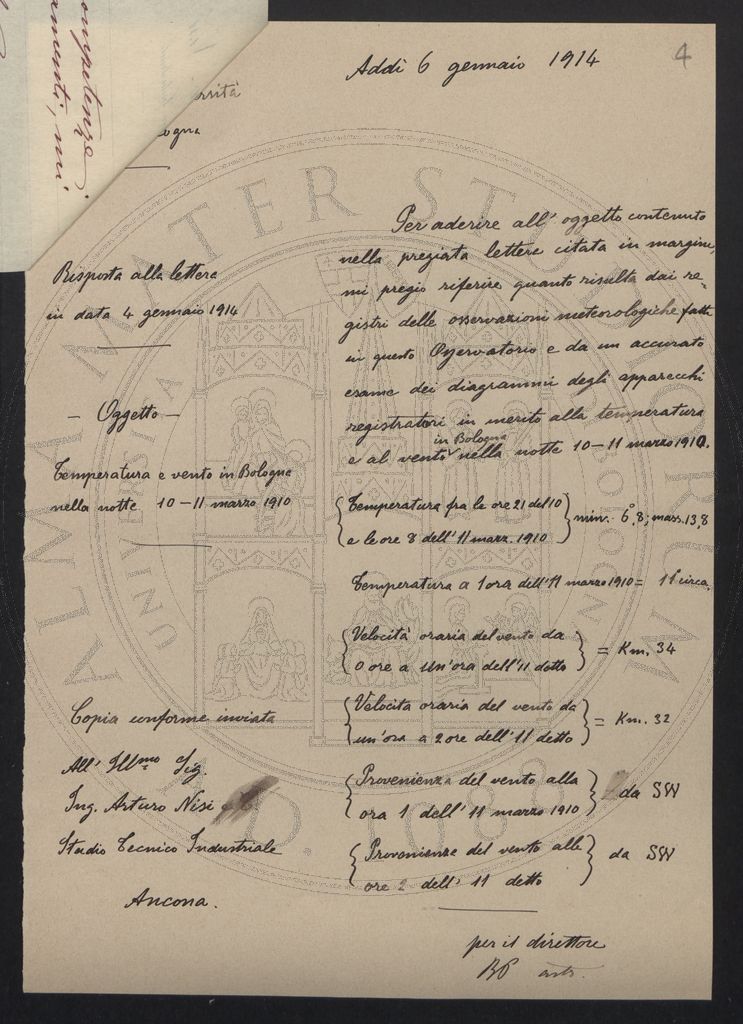 ompetenze
amenti, mi
ersità
ologna
Addì 6 gennaio 1914
4
Risposta alla lettera
in data 4 gennaio 1914
- Oggetto -
Temperatura e vento in Bologna
nella notte 10-11 marzo 1910
Per aderire all'oggetto contenuto
nella pregiata lettera citata in margine,
mi pregio riferire quanto risulta dai re-
gistri delle osservazioni meteorologiche fatte
in questo Osservatorio e da un accurato
esame dei diagrammi degli apparecchi
registratori in merito alla temperatura
e al vento in Bologna nella notte 10-11 marzo 1910.
{Temperatura fra le ore 21 del 10
e le ore 8 dell'11 marz. 1910} min. 6°,8; mass. 13,8
Temperatura a 1 ora dell'11 marzo 1910 = 11° circa.
{Velocità oraria del vento da
0 ore a un'ora dell'11 detto} = Km. 34
{Velocità oraria del vento da
un'ora a 2 ore dell'11 detto} = Km. 32
{Provenienza del vento alla
ora 1 dell'11 marzo 1910} da SW
{Provenienza del vento alle
ore 2 dell'11 detto} da SW
Copia conforme inviata
All'Illmo Sig.
Ing. Arturo Nisi
Studio Tecnico Industriale
Ancona.
per il direttore
ALMA MATER STUDIORUM
UNIVERSITÀ DI BOLOGNA
A.D. 1088